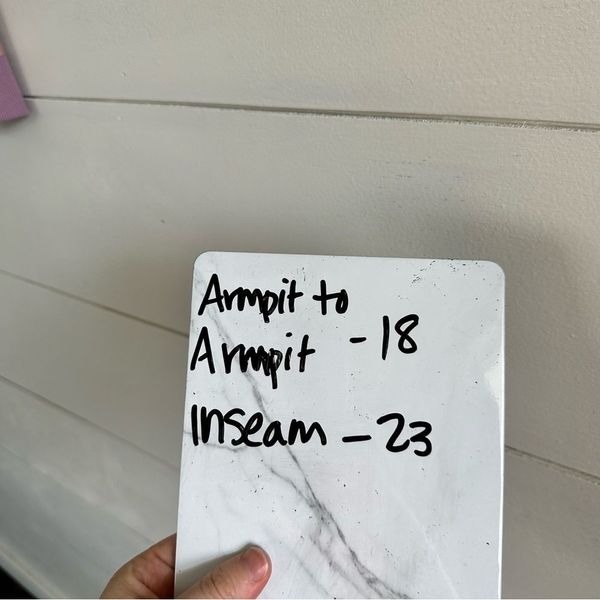 Armpit to
Armpit - 18
Inseam - 23